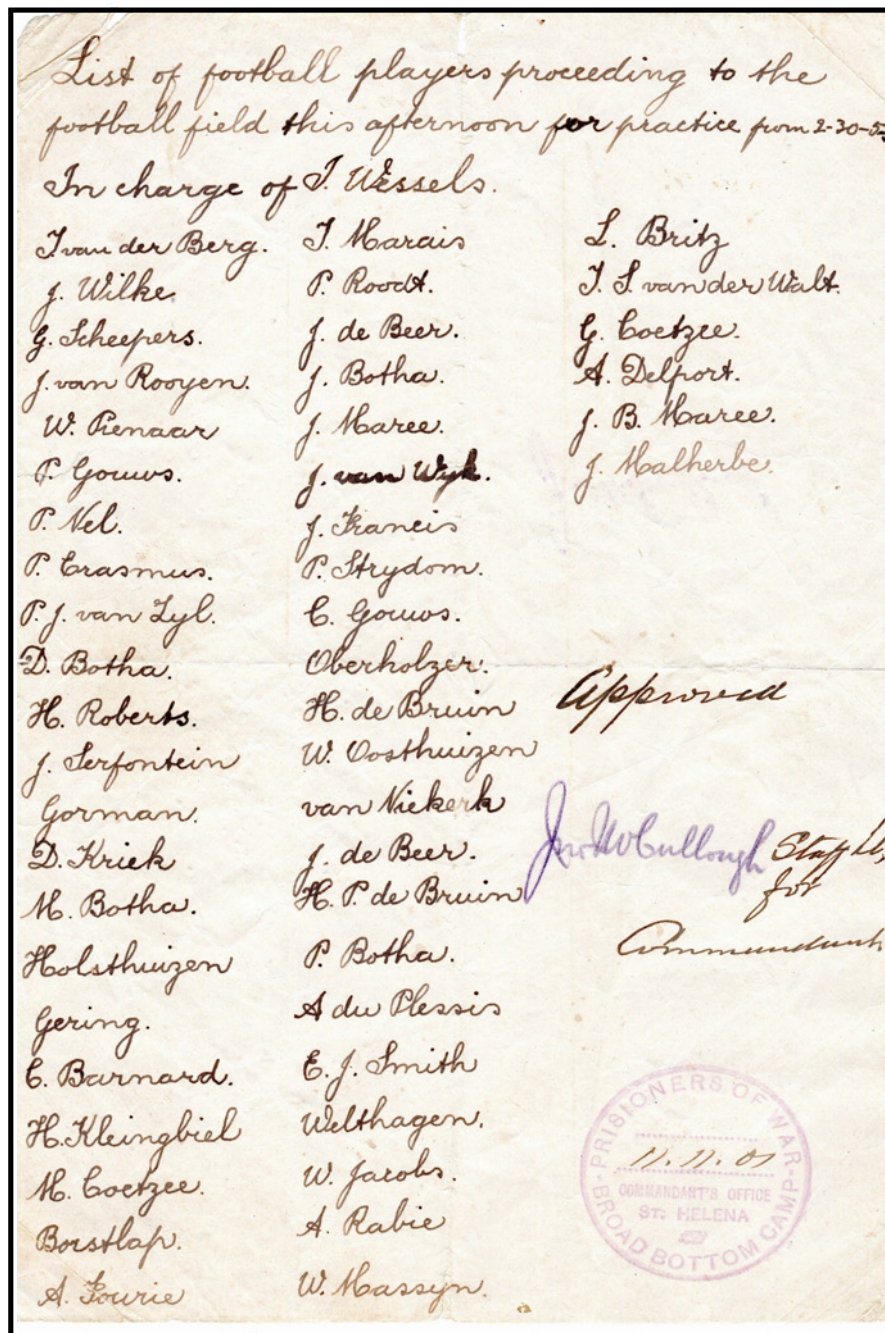 List of football players proceeding to the
football field this afternoon for practice from 2-30-5
In charge of J. Wessels.
J. van der Berg.
J. Wilke.
G. Scheepers.
J. van Rooyen.
W. Pienaar
P. Gouws.
P. Nel.
P. Erasmus.
P. J. van Zyl.
D. Botha.
H. Roberts.
J. Serfontein
Gorman.
D. Kriek
M. Botha.
Holsthuizen
Gering.
C. Barnard.
H. Kleingbiel
M. Coetzee.
Borstlap.
A. Fourie
J. Marais
P. Roodt.
J. de Beer.
J. Botha.
J. Maree.
J. van Wyk.
J. Francis
P. Strydom.
C. Gouws.
Oberholzer.
H. de Bruin
W. Oosthuizen
van Niekerk
J. de Beer.
H. P. de Bruin
P. Botha.
A du Plessis
E. J. Smith
Welthagen.
W. Jacobs.
A. Rabie
W. Massyn.
L. Britz
J. S. van der Walt.
G. Coetzee.
A. Delport.
J. B. Maree.
J. Malherbe.
Approved
McCullough Staff
for
Commandant
PRISIONERS OF WAR
11.11.01
COMMANDANT'S OFFICE
ST: HELENA
BROAD BOTTOM CAMP